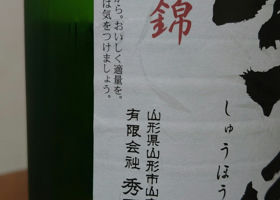 錦
しゅうほう
から。おいしく適量を。
は気をつけましょう。
山形県山形市山
有限会社 秀